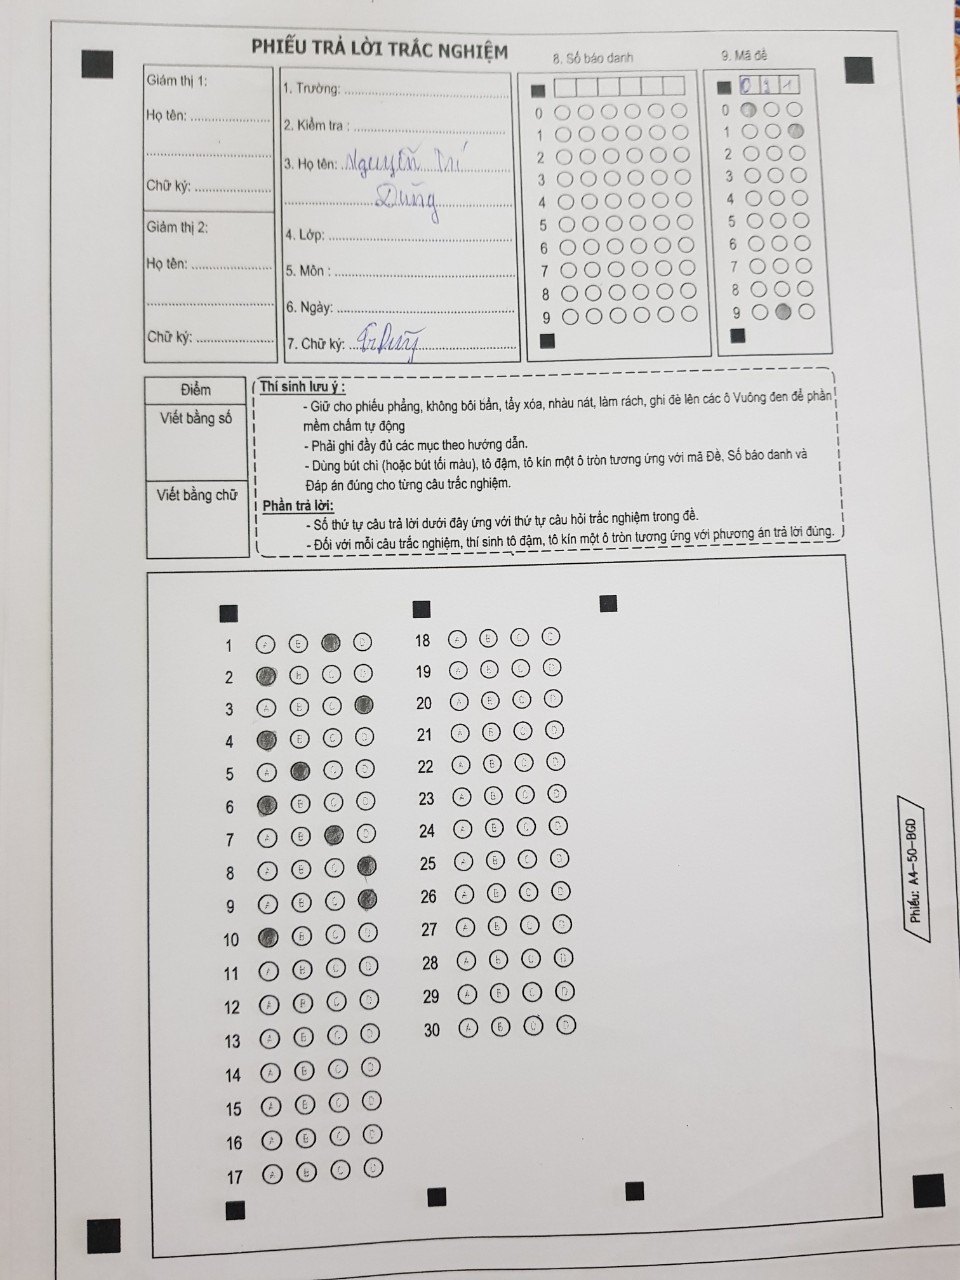 PHIẾU TRẢ LỜI TRẮC NGHIỆM
Giám thị 1:
Họ tên:
Chữ ký:
Giám thị 2:
Họ tên:
Chữ ký:
1. Trường:
2. Kiểm tra :
3. Họ tên: Nguyễn Trí
Dũng
4. Lớp:
5. Môn :
6. Ngày:
7. Chữ ký: TrDũng
8. Số báo danh
0
1
2
3
4
5
6
7
8
9
9. Mã đề
0 9 1
0
1
2
3
4
5
6
7
8
9
Điểm
Viết bằng số
Viết bằng chữ
Thí sinh lưu ý :
- Giữ cho phiếu phẳng, không bôi bẩn, tẩy xóa, nhàu nát, làm rách, ghi đè lên các ô Vuông đen để phần
mềm chấm tự động
- Phải ghi đầy đủ các mục theo hướng dẫn.
- Dùng bút chì (hoặc bút tối màu), tô đậm, tô kín một ô tròn tương ứng với mã Đề, Số báo danh và
Đáp án đúng cho từng câu trắc nghiệm.
Phần trả lời:
- Số thứ tự câu trả lời dưới đây ứng với thứ tự câu hỏi trắc nghiệm trong đề.
- Đối với mỗi câu trắc nghiệm, thí sinh tô đậm, tô kín một ô tròn tương ứng với phương án trả lời đúng.
1 A B D
2 B C D
3 A B C
4 B C D
5 A C D
6 B C D
7 A B D
8 A B C
9 A B C
10 B C D
11 A B C D
12 A B C D
13 A B C D
14 A B C D
15 A B C D
16 A B C D
17 A B C D
18 A B C D
19 A B C D
20 A B C D
21 A B C D
22 A B C D
23 A B C D
24 A B C D
25 A B C D
26 A B C D
27 A B C D
28 A B C D
29 A B C D
30 A B C D
Phiếu: A4-50-BGD